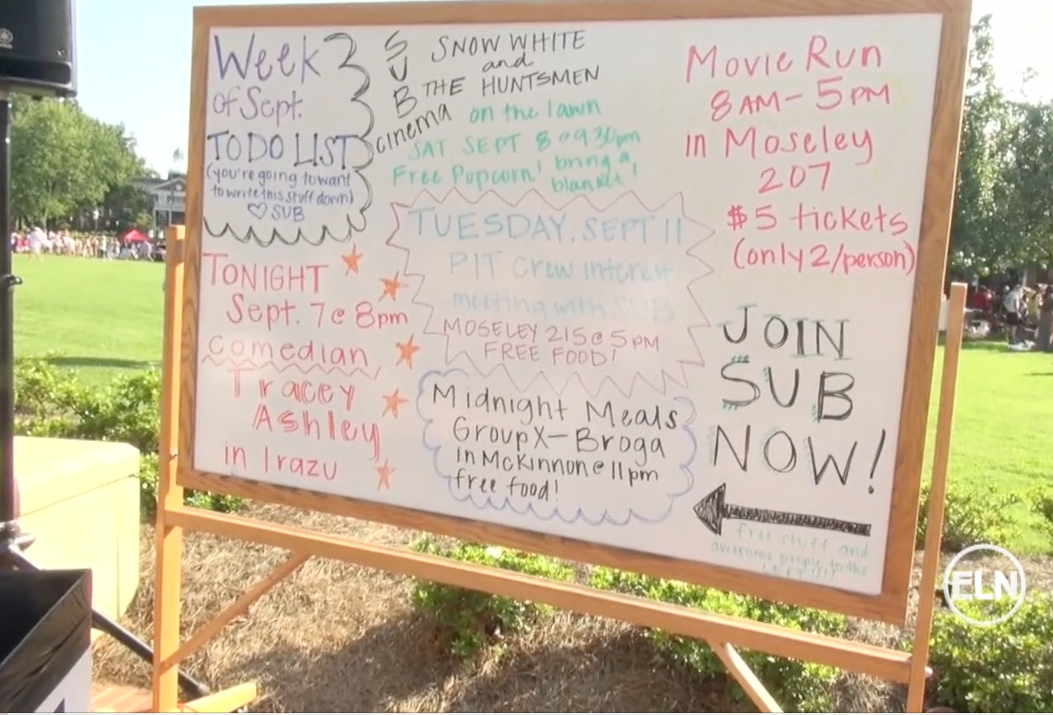 Week
of Sept.
TO DO LIST
(you're going to want
to write this stuff down)
♡ SUB
TONIGHT
Sept. 7 @ 8pm
comedian
Tracey
Ashley
in Irazu
SUB
cinema
SNOW WHITE
and
THE HUNTSMEN
on the lawn
SAT SEPT 8 @ 930pm
Free Popcorn! bring a
blanket!
TUESDAY, SEPT 11
PIT crew interest
meeting with SUB
MOSELEY 215 @ 5 PM
FREE FOOD!
Midnight Meals
Group X - Broga
in McKinnon @ 11pm
free food!
Movie Run
8 AM - 5 PM
in Moseley
207
$5 tickets
(only 2/person)
JOIN
SUB
NOW!
free stuff and
awesome people to the
LEFT!!!!
ELN